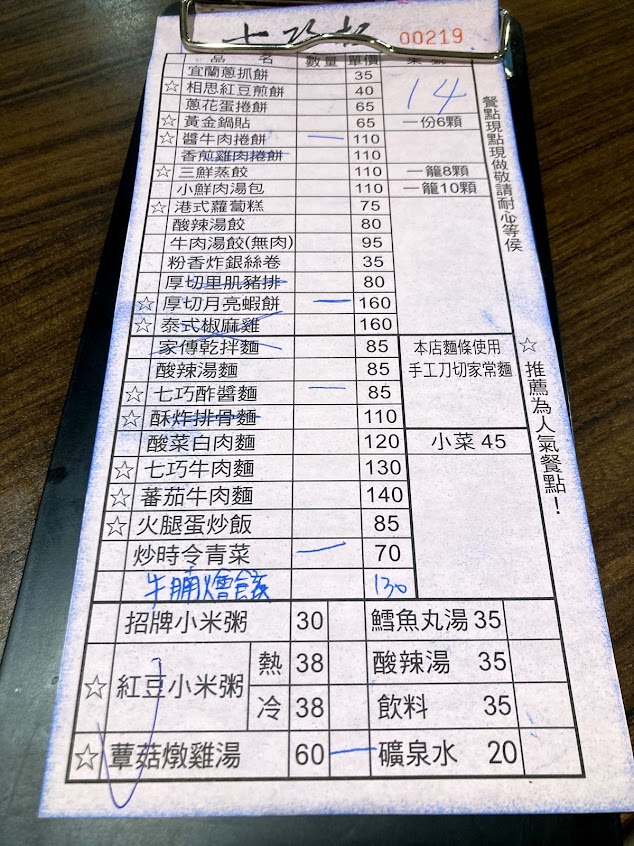 七巧板
00219
品 名 數量 單價 桌號
14
宜蘭蔥抓餅 35
☆ 相思紅豆煎餅 40
蔥花蛋捲餅 65
☆ 黃金鍋貼 65 一份6顆
☆ 醬牛肉捲餅 一 110
香煎雞肉捲餅 110
☆ 三鮮蒸餃 110 一籠8顆
小鮮肉湯包 110 一籠10顆
☆ 港式蘿蔔糕 75
酸辣湯餃 80
牛肉湯餃(無肉) 95
粉香炸銀絲卷 35
厚切里肌豬排 80
☆ 厚切月亮蝦餅 一 160
☆ 泰式椒麻雞 160
家傳乾拌麵 85 本店麵條使用
酸辣湯麵 85 手工刀切家常麵
☆ 七巧酢醬麵 一 85
☆ 酥炸排骨麵 110
酸菜白肉麵 120 小菜 45
☆ 七巧牛肉麵 130
☆ 蕃茄牛肉麵 140
☆ 火腿蛋炒飯 85
炒時令青菜 一 70
牛腩燴飯 130
餐點現點現做敬請耐心等侯
☆推薦為人氣餐點！
招牌小米粥 30 鱈魚丸湯 35
☆ 紅豆小米粥 熱 38 酸辣湯 35
冷 38 飲料 35
☆ 蕈菇燉雞湯 60 一 礦泉水 20